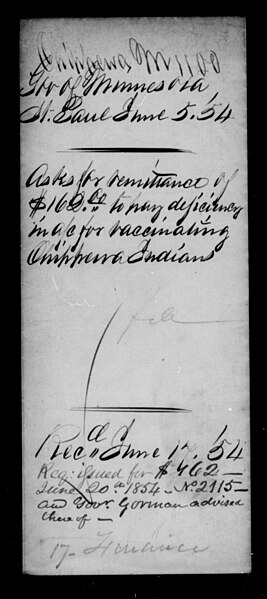 Chippewa, M 1100
Gov of Minnesota,
St. Paul June 5. 54
Asks for remittance of
$162.00 to pay deficiency
in a/c for vaccinating
Chippewa Indians
File
Recd June 17. 54
Req: issued for $462—
June 20th 1854. No. 2115—
and Gov. Gorman advised
thereof—
17- Finance